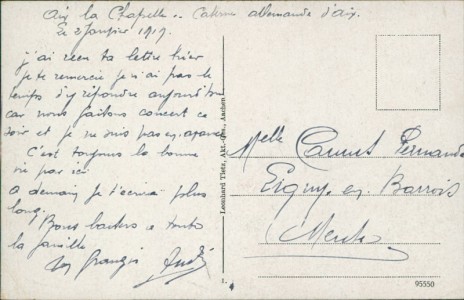 Aix la Chapelle .. Caserne allemande d'Aix.
Le 2 Janvier 1919.
j'ai reçu ta lettre hier
je te remercie je n'ai pas le
temps d'y répondre aujourd'hui
car nous faisons concert ce
soir et je ne suis pas en avance
C'est toujours la bonne
vie par ici
a demain je t'écrirai plus
long.
Bons baisers a toute
la famille
ton français André
Melle Camus Fernande
Ligny en Barrois
Meuse
Leonhard Tietz, Akt.-Ges., Aachen
1.
95550